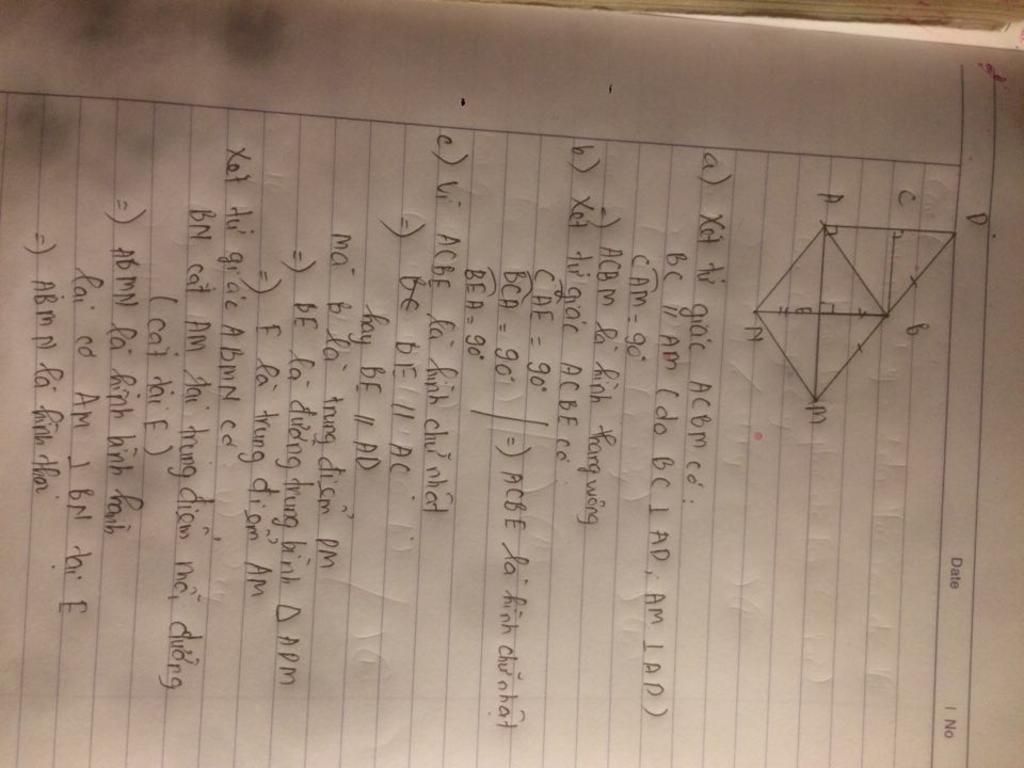 Date
No
D
C
B
A
E
M
N
a) Xét tứ giác ACBM có:
BC // AM (do BC ⊥ AD; AM ⊥ AD)
CAM = 90°
=) ACBM là hình thang vuông
b) Xét tứ giác ACBE có
CAE = 90°
BCA = 90° =) ACBE là hình chữ nhật
BEA = 90°
c) Vì ACBE là hình chữ nhật
=) BE // AC
hay BE // AD
Mà B là trung điểm DM
=) BE là đường trung bình Δ ADM
=) E là trung điểm AM
Xét tứ giác ABMN có
BN cắt AM tại trung điểm mỗi đường
(cắt tại E)
=) ABMN là hình bình hành
lại có AM ⊥ BN tại E
=) ABMN là hình thoi